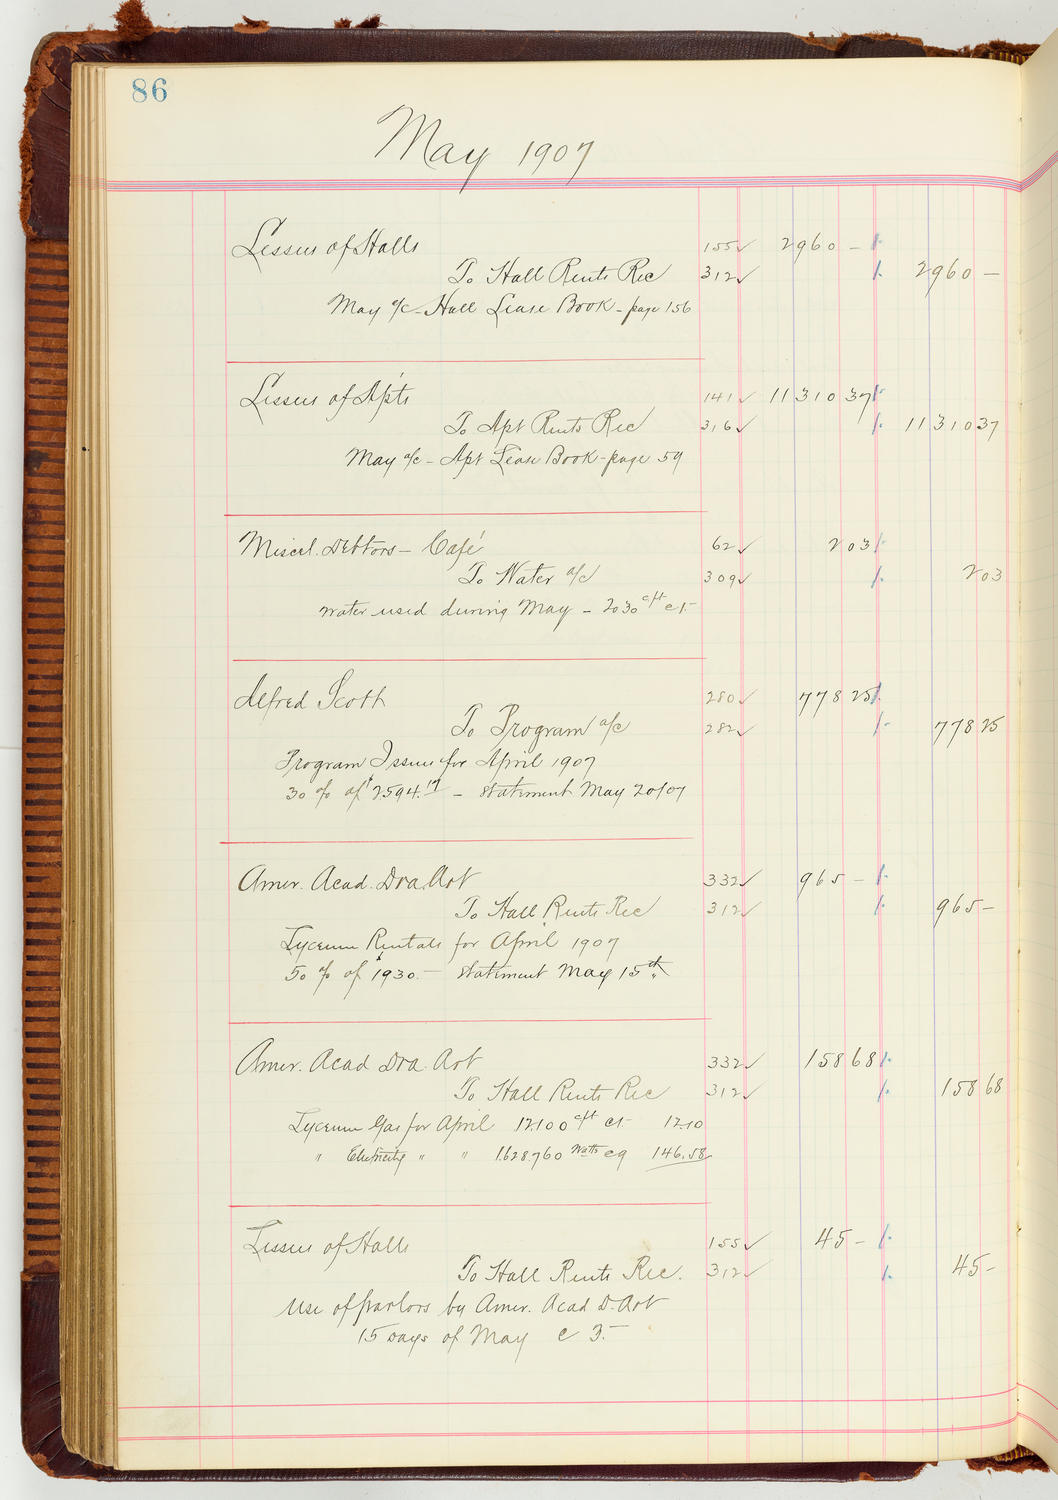 86
May 1907
Lessees of Halls 155✓ 2960 –
To Hall Rents Rec 312✓ 2960 –
May a/c – Hall Lease Book – page 156
Lessees of Apts 141✓ 11310 37
To Apt Rents Rec 316✓ 11310 37
May a/c – Apt Lease Book – page 59
Miscel. Debtors – Café 62✓ 2 03
To Water a/c 309✓ 2 03
Water used during May – 2030 cft @ 1–
Alfred Scott 280✓ 778 25
To Program a/c 282✓ 778 25
Program Issues for April 1907
30 % of $2594.17 – Statement May 20/07
Amer. Acad. Dra. Art 332✓ 965 –
To Hall Rents Rec 312✓ 965 –
Lyceum Rentals for April 1907
50 % of $1930. – Statement May 15th
Amer. Acad Dra. Art 332✓ 158 68
To Hall Rents Rec 312✓ 158 68
Lyceum Gas for April 12100 cft @ 1– 12.10
" Electricity " " 1628760 Watts @ 9 146.58
Lessees of Halls 155✓ 45 –
To Hall Rents Rec. 312✓ 45 –
Use of parlors by Amer. Acad D. Art
15 Days of May @ 3. –